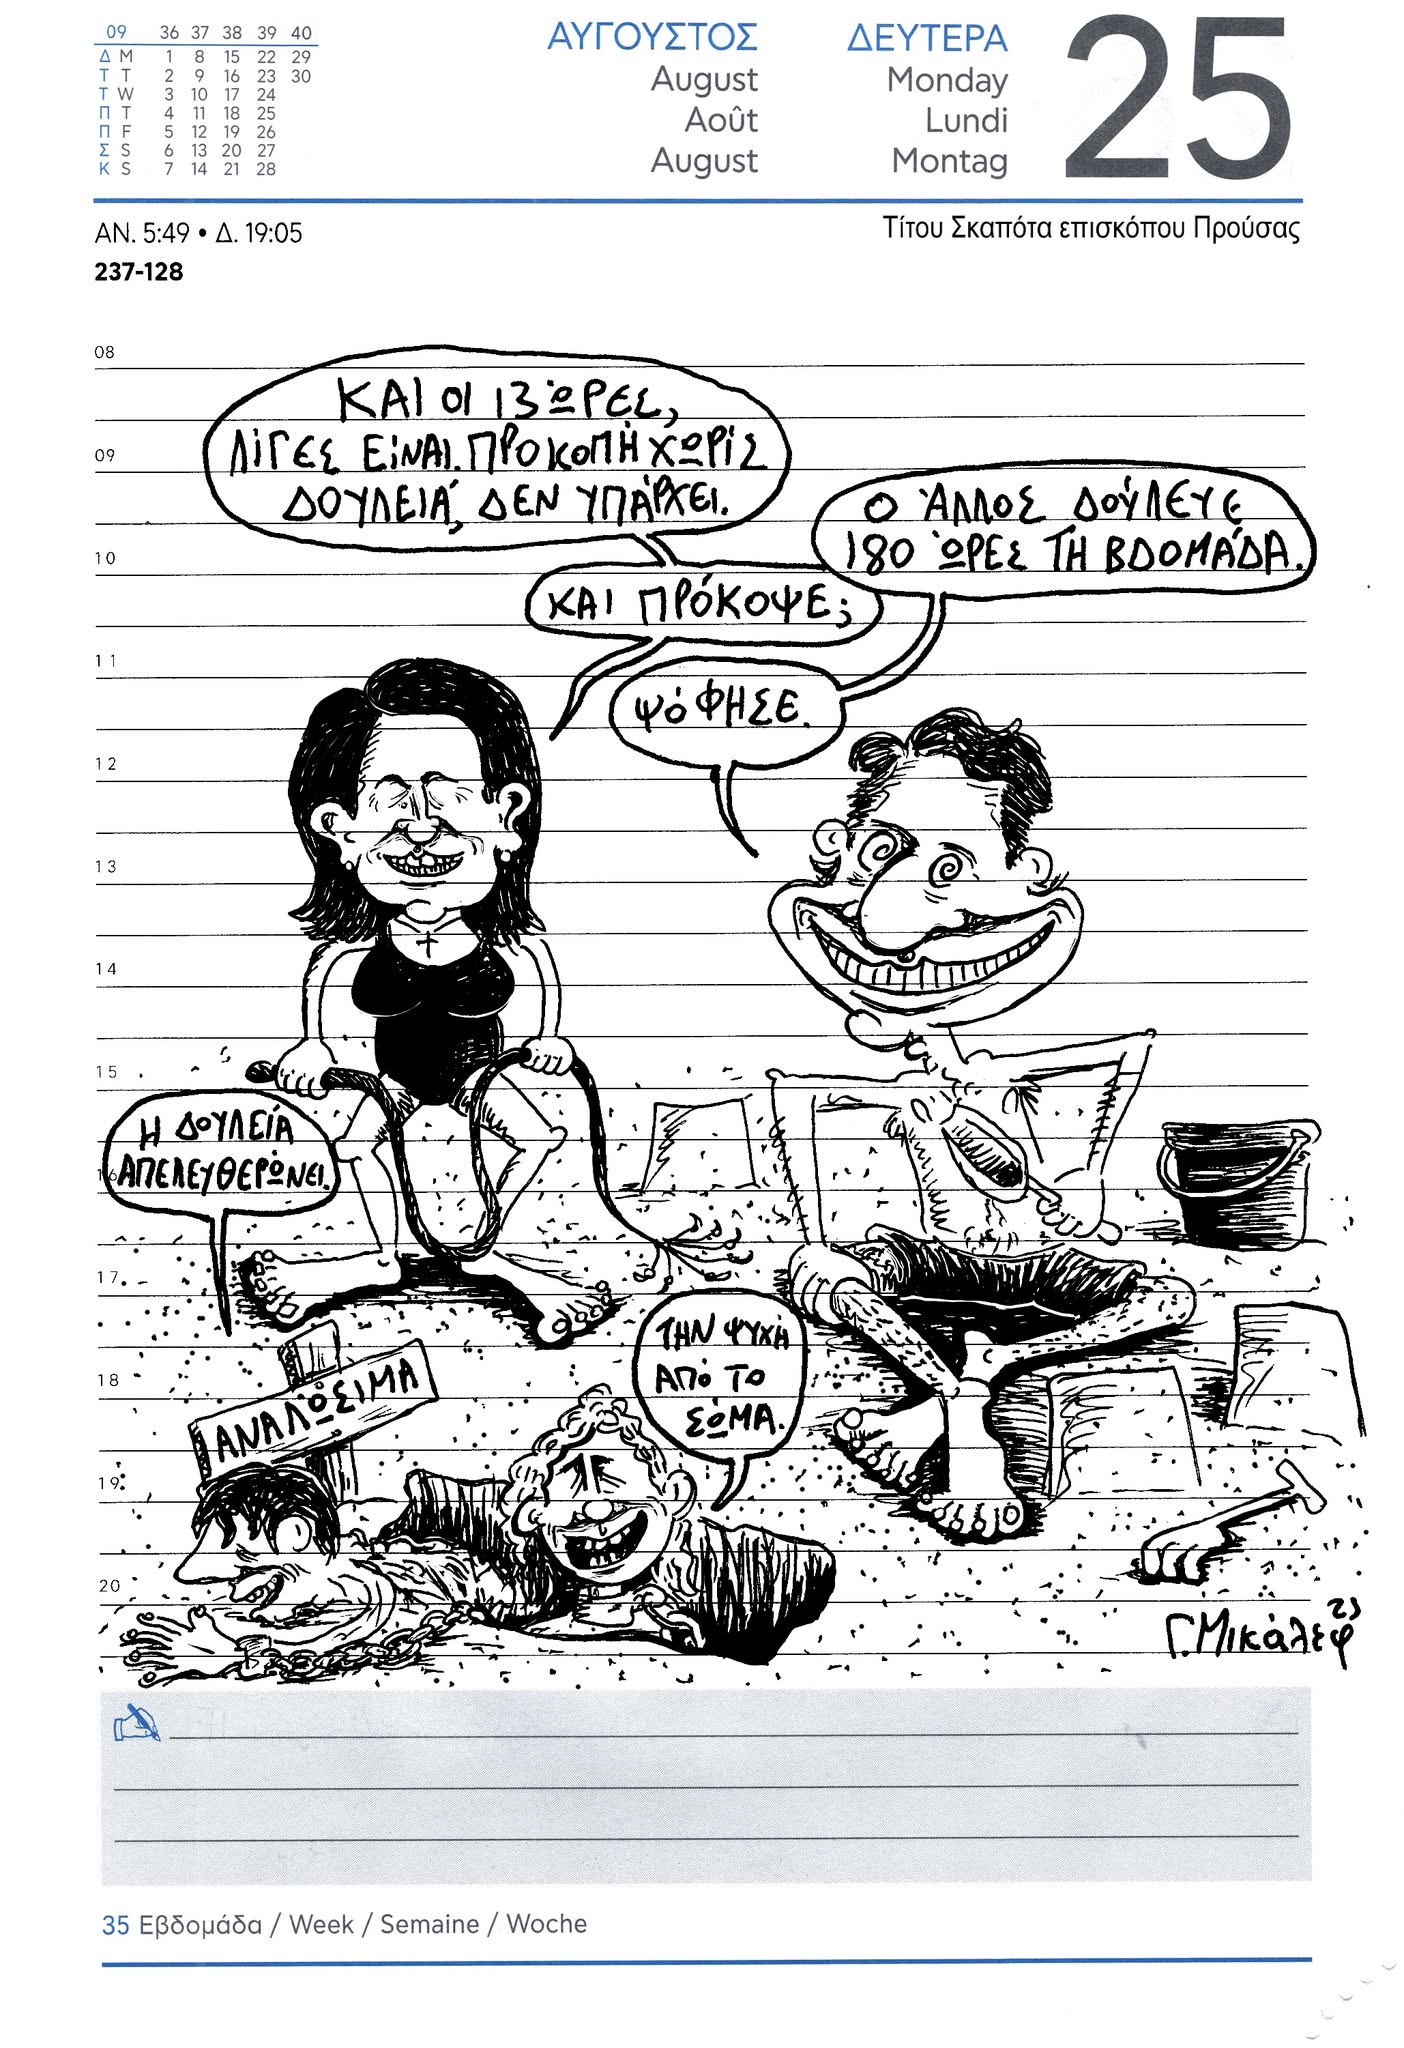 09 36 37 38 39 40
Δ M 1 8 15 22 29
Τ T 2 9 16 23 30
Τ W 3 10 17 24
Π T 4 11 18 25
Π F 5 12 19 26
Σ S 6 13 20 27
Κ S 7 14 21 28
ΑΥΓΟΥΣΤΟΣ
August
Août
August
ΔΕΥΤΕΡΑ
Monday
Lundi
Montag
25
ΑΝ. 5:49 • Δ. 19:05
Τίτου Σκαπότα επισκόπου Προύσας
237-128
08
ΚΑΙ ΟΙ 13 ΏΡΕΣ,
ΛΊΓΕΣ ΕΊΝΑΙ. ΠΡΟΚΟΠΉ ΧΩΡΊΣ
ΔΟΥΛΕΙΆ, ΔΕΝ ΥΠΆΡΧΕΙ.
09
Ο ΆΛΛΟΣ ΔΟΎΛΕΥΕ
180 ΏΡΕΣ ΤΗ ΒΔΟΜΆΔΑ.
10
ΚΑΙ ΠΡΌΚΟΨΕ;
11
ΨΌΦΗΣΕ.
12
13
14
15
Η ΔΟΥΛΕΊΑ
ΑΠΕΛΕΥΘΕΡΏΝΕΙ.
16
17
ΤΗΝ ΨΥΧΉ
ΑΠΌ ΤΟ
ΣΏΜΑ.
18
ΑΝΑΛΏΣΙΜΑ
19
20
Γ. Μικάλεφ
25
35 Εβδομάδα / Week / Semaine / Woche